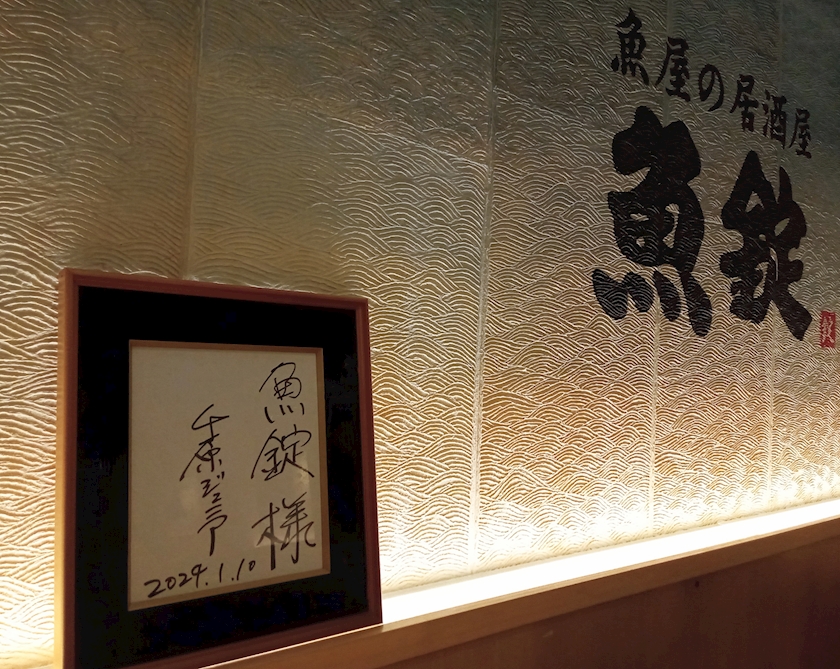 魚屋の居酒屋
魚錠
魚錠様
千原ジュニア
2024.1.10